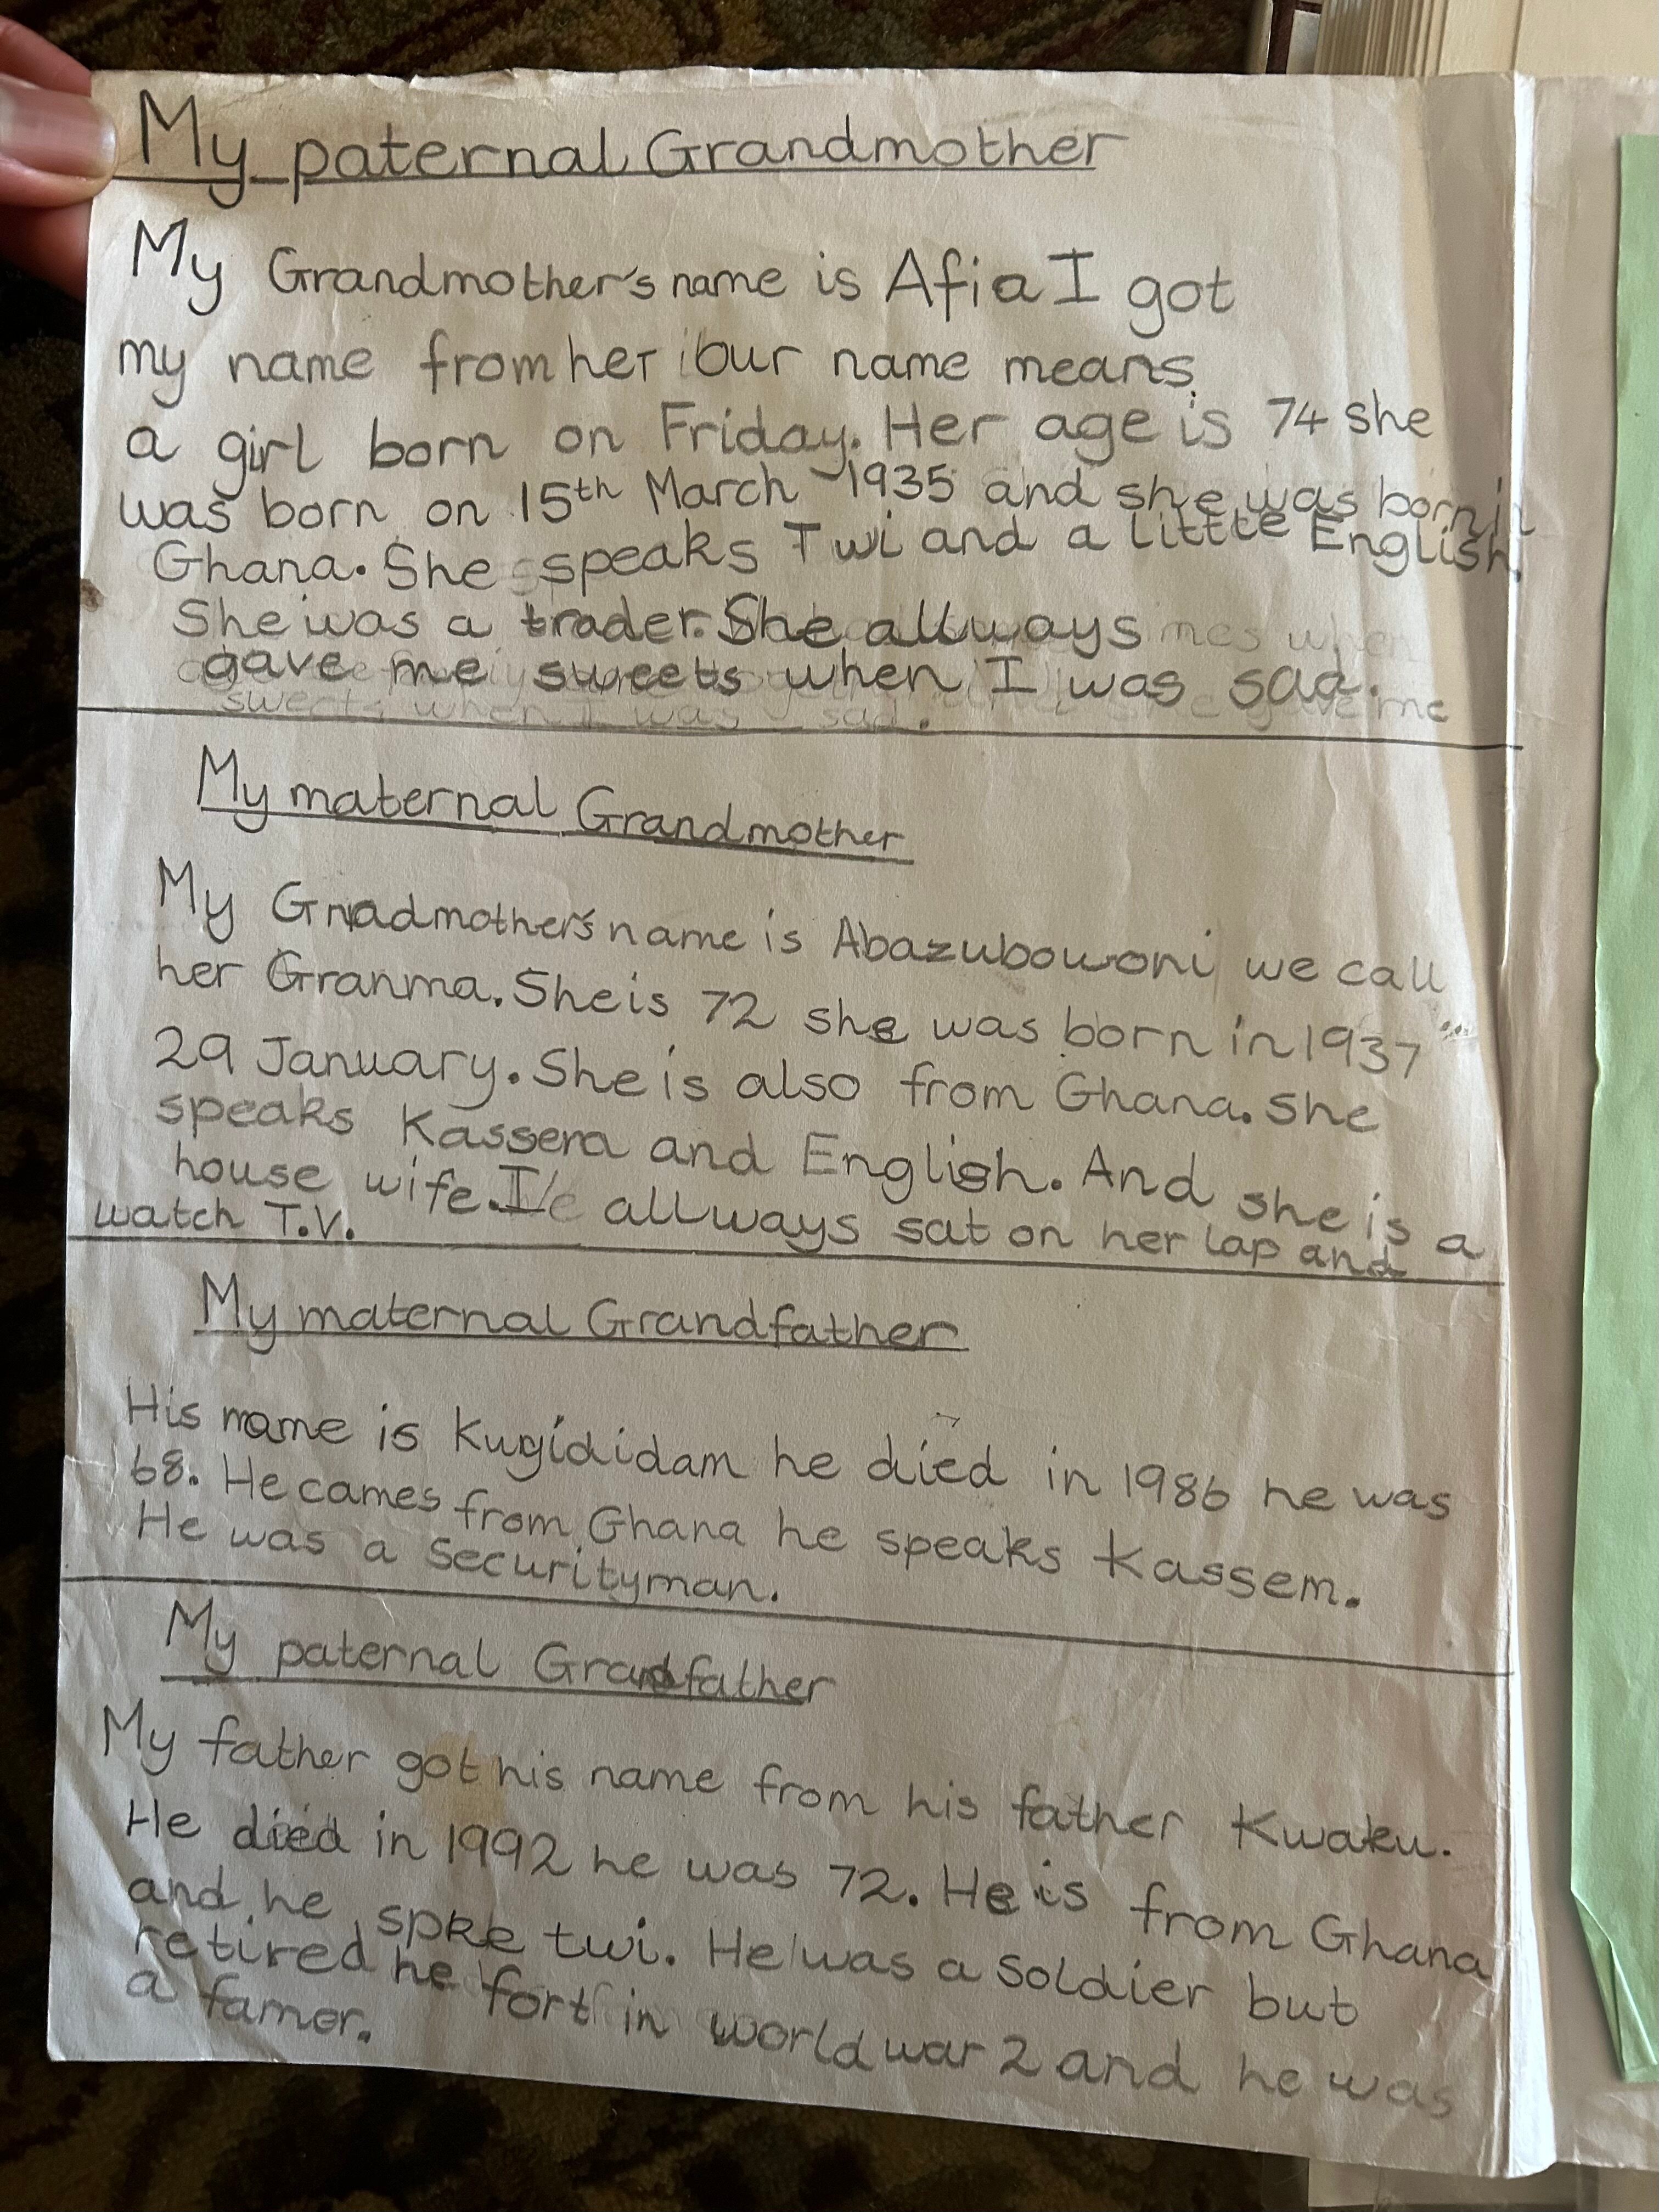 My paternal Grandmother
My Grandmother's name is Afia I got
my name from her our name means
a girl born on Friday. Her age is 74 she
was born on 15th March 1935 and she was born in
Ghana. She speaks Twi and a little English.
She was a trader. She allways
gave me sweets when I was sad.
sweets when I was sad. gave me
My maternal Grandmother
My Gradmother's name is Abazubowoni we call
her Granma. She is 72 she was born in 1937
29 January. She is also from Ghana. She
speaks Kassera and English. And she is a
house wife. I allways sat on her lap and
watch T.V.
My maternal Grandfather
His name is Kugididam he died in 1986 he was
68. He cames from Ghana he speaks Kassem.
He was a Securityman.
My paternal Grandfather
My father got his name from his father Kwaku.
He died in 1992 he was 72. He is from Ghana
and he spke twi. He was a Soldier but
retired he fort in world war 2 and he was
a famer.